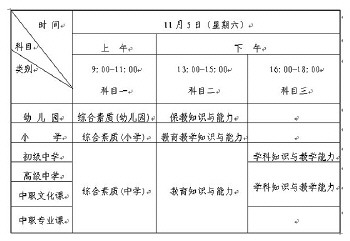 时 间
11月5日（星期六）
科目
类别
上 午
下 午
9:00-11:00
科目一
13:00-15:00
科目二
16:00-18:00
科目三
幼 儿 园
综合素质(幼儿园)
保教知识与能力
小 学
综合素质(小学)
教育教学知识与能力
初级中学
高级中学
中职文化课
中职专业课
综合素质(中学)
教育知识与能力
学科知识与教学能力
学科知识与教学能力